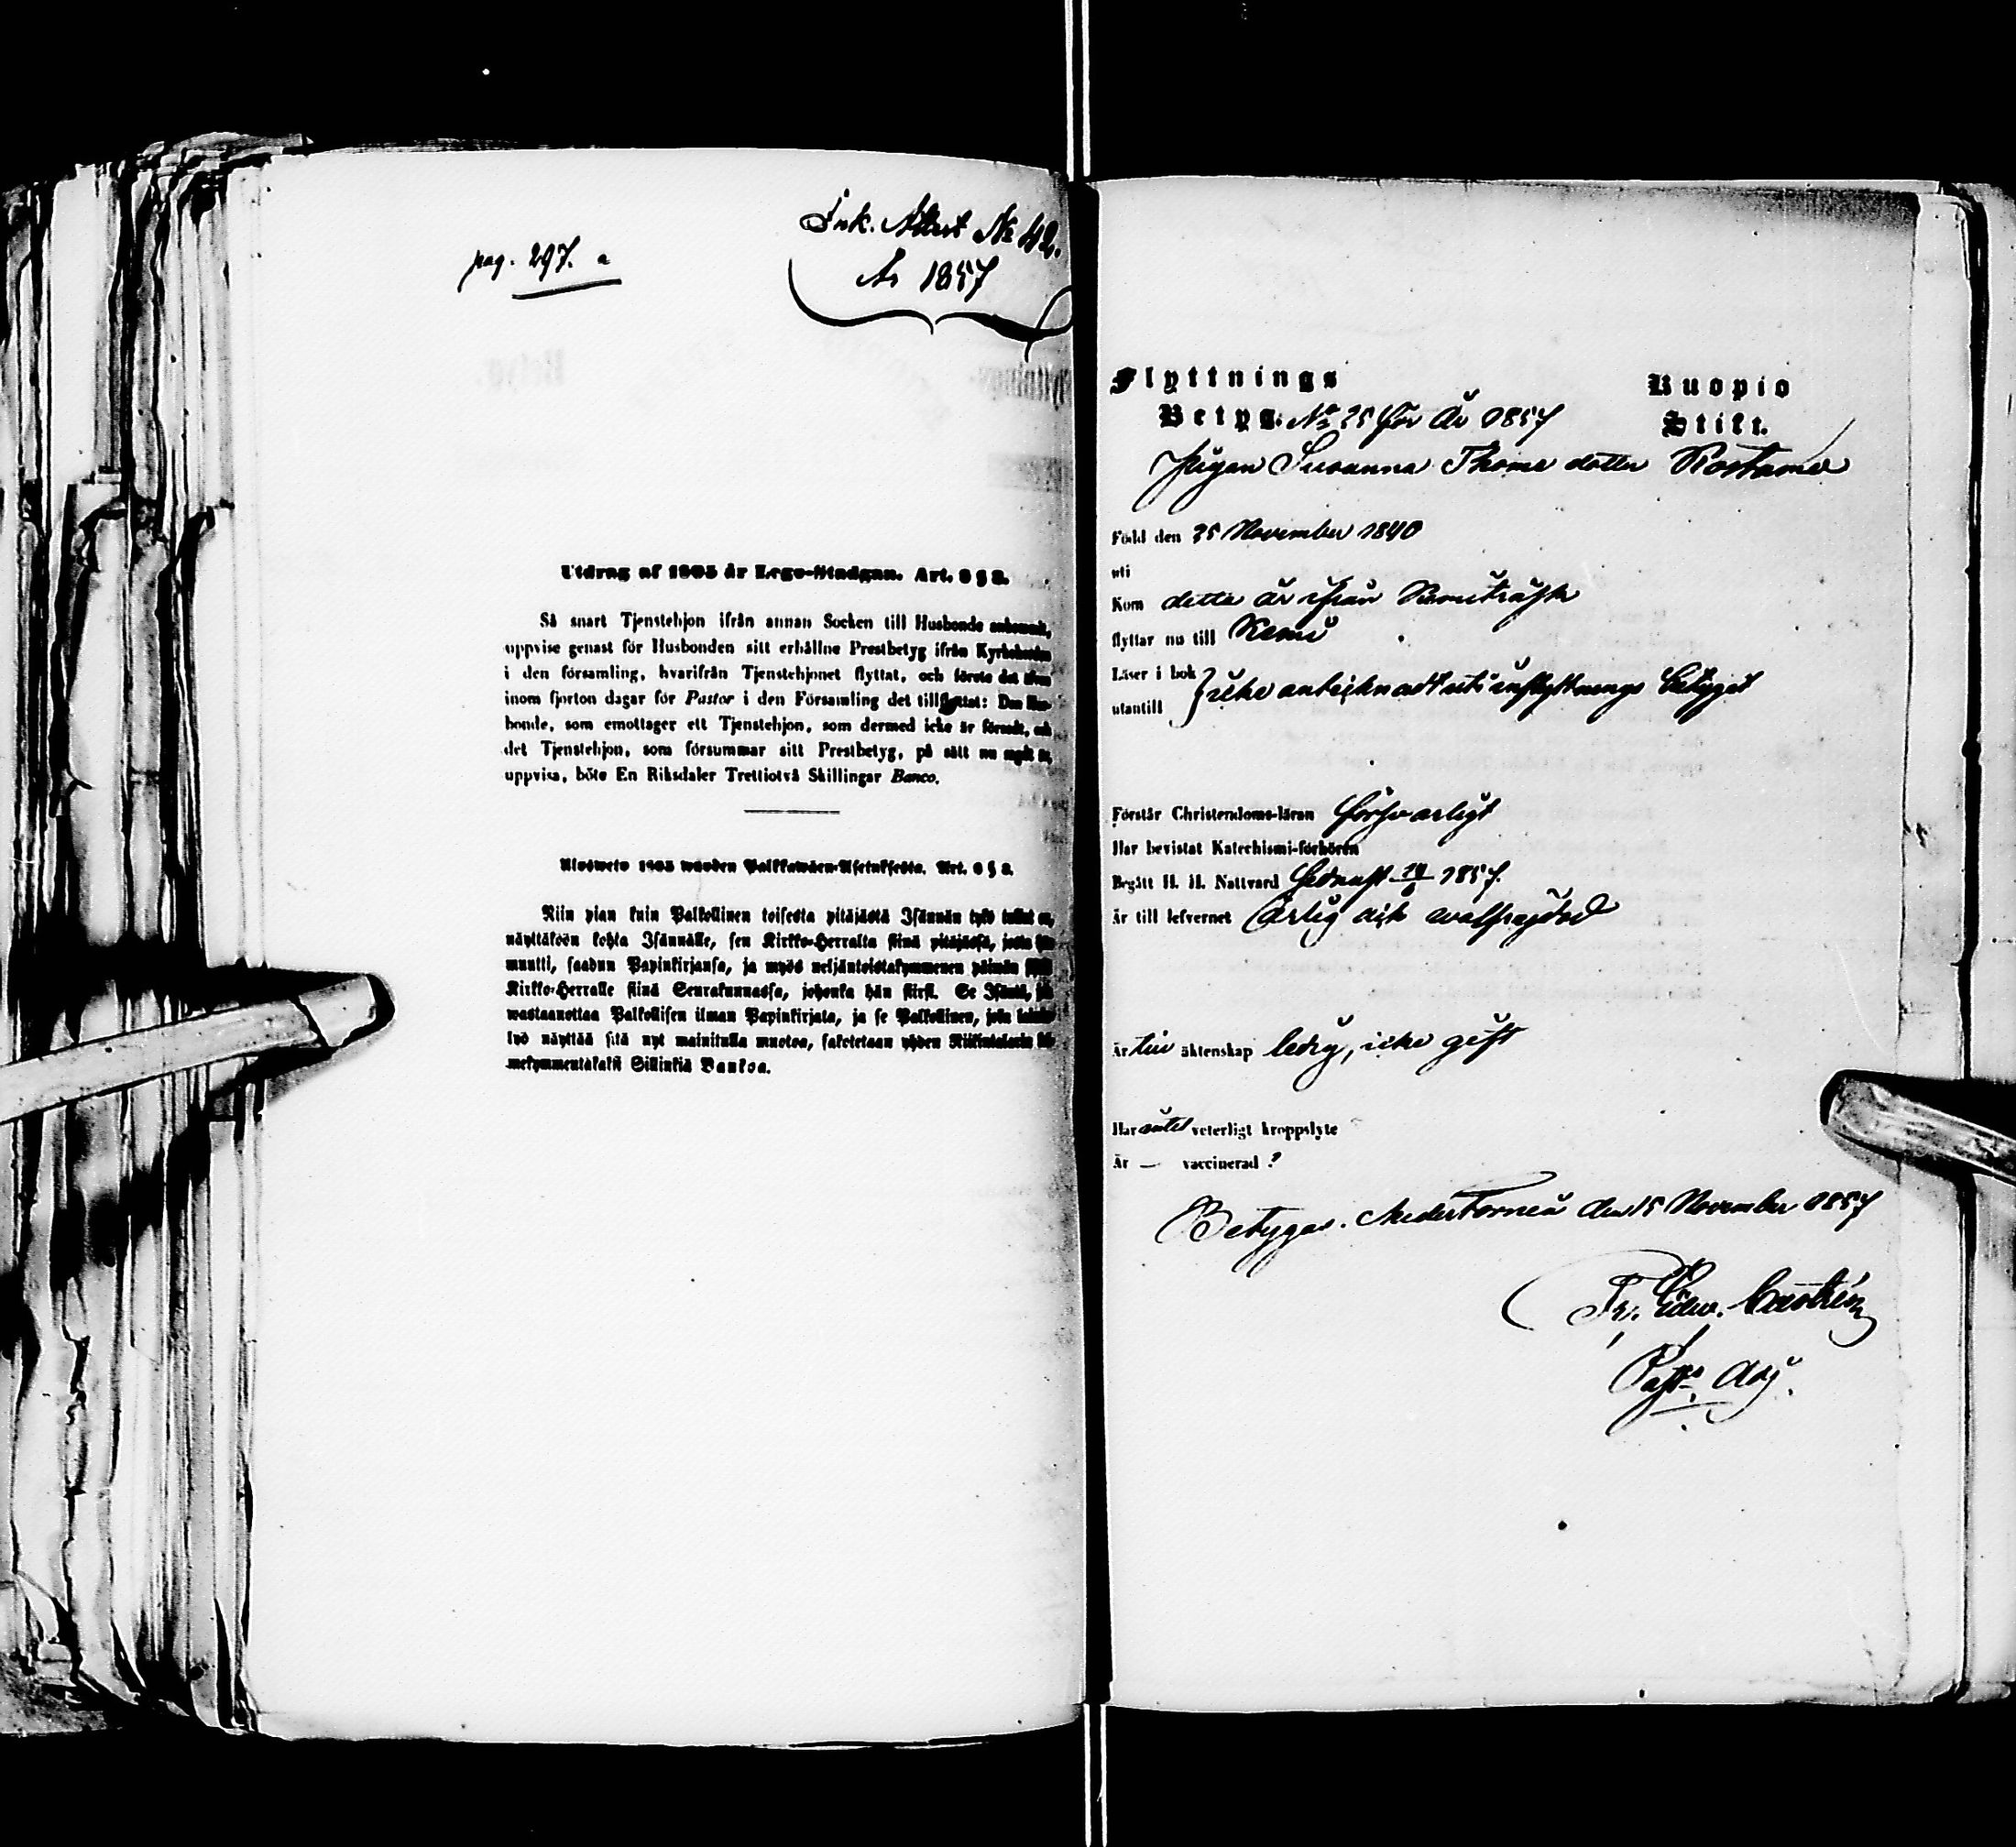 pag. 297. a
Ink. Attest № 42.
År 1857
Utdrag af 1805 år Lego-Stadgan. Art. 8 § 2.
Så snart Tjenstehjon ifrån annan Socken till Husbonde ankommit,
uppvise genast för Husbonden sitt erhållne Prestbetyg ifrån Kyrkoherden
i den församling, hvarifrån Tjenstehjonet flyttat, och förete det äfven
inom fjorton dagar för Pastor i den Församling det tillflyttat: Den Hus-
bonde, som emottager ett Tjenstehjon, som dermed icke är försedt, och
det Tjenstehjon, som försummar sitt Prestbetyg, på sätt nu sagdt är,
uppvisa, böte En Riksdaler Trettiotvå Skillingar Banco.
Ulosweto 1805 wuoden Palkkawäen-Asetuksesta. Art. 8 § 2.
Niin pian kuin Palkollinen toisesta pitäjästä Isännän tykö tullut on,
näyttäköön kohta Isännälle, sen Kirkko-Herralta siinä pitäjässä, josta hän
muutti, saadun Papinkirjansa, ja myös neljäntoistakymmenen päiwän
Kirkko-Herralle siinä Seurakunnassa, johonka hän siirsi. Se Isäntä, joka
wastaanottaa Palkollisen ilman Papinkirjata, ja se Palkollinen, joka
lyö näyttää sitä nyt mainitulla muotoa, sakotetaan yhden Riikintalarin kol-
mekymmentäkaksi Sillinkiä Bankoa.
Flyttnings
Betyg. № 25 för År 1857
Kuopio
Stift.
Pigan Susanna Thoma dotter Rostamo
Född den 25 November 1840
uti
Kom detta år ifrån Kemiträsk
flyttar nu till Kemi
Läser i bok
utantill } icke antecknadt uti inflyttnings betyget
Förstår Christendoms-läran försvarligt
Har bevistat Katechismi-förhören
Begått H. H. Nattvard sednast 1857.
Är till lefvernet ärlig och wälfrejdad
Är till äktenskap ledig, icke gift
Har intet veterligt kroppslyte
Är — vaccinerad ?
Betygas. Neder Torneå den 15 November 1857
Fr. Edw. Castrén
Past. Adj.